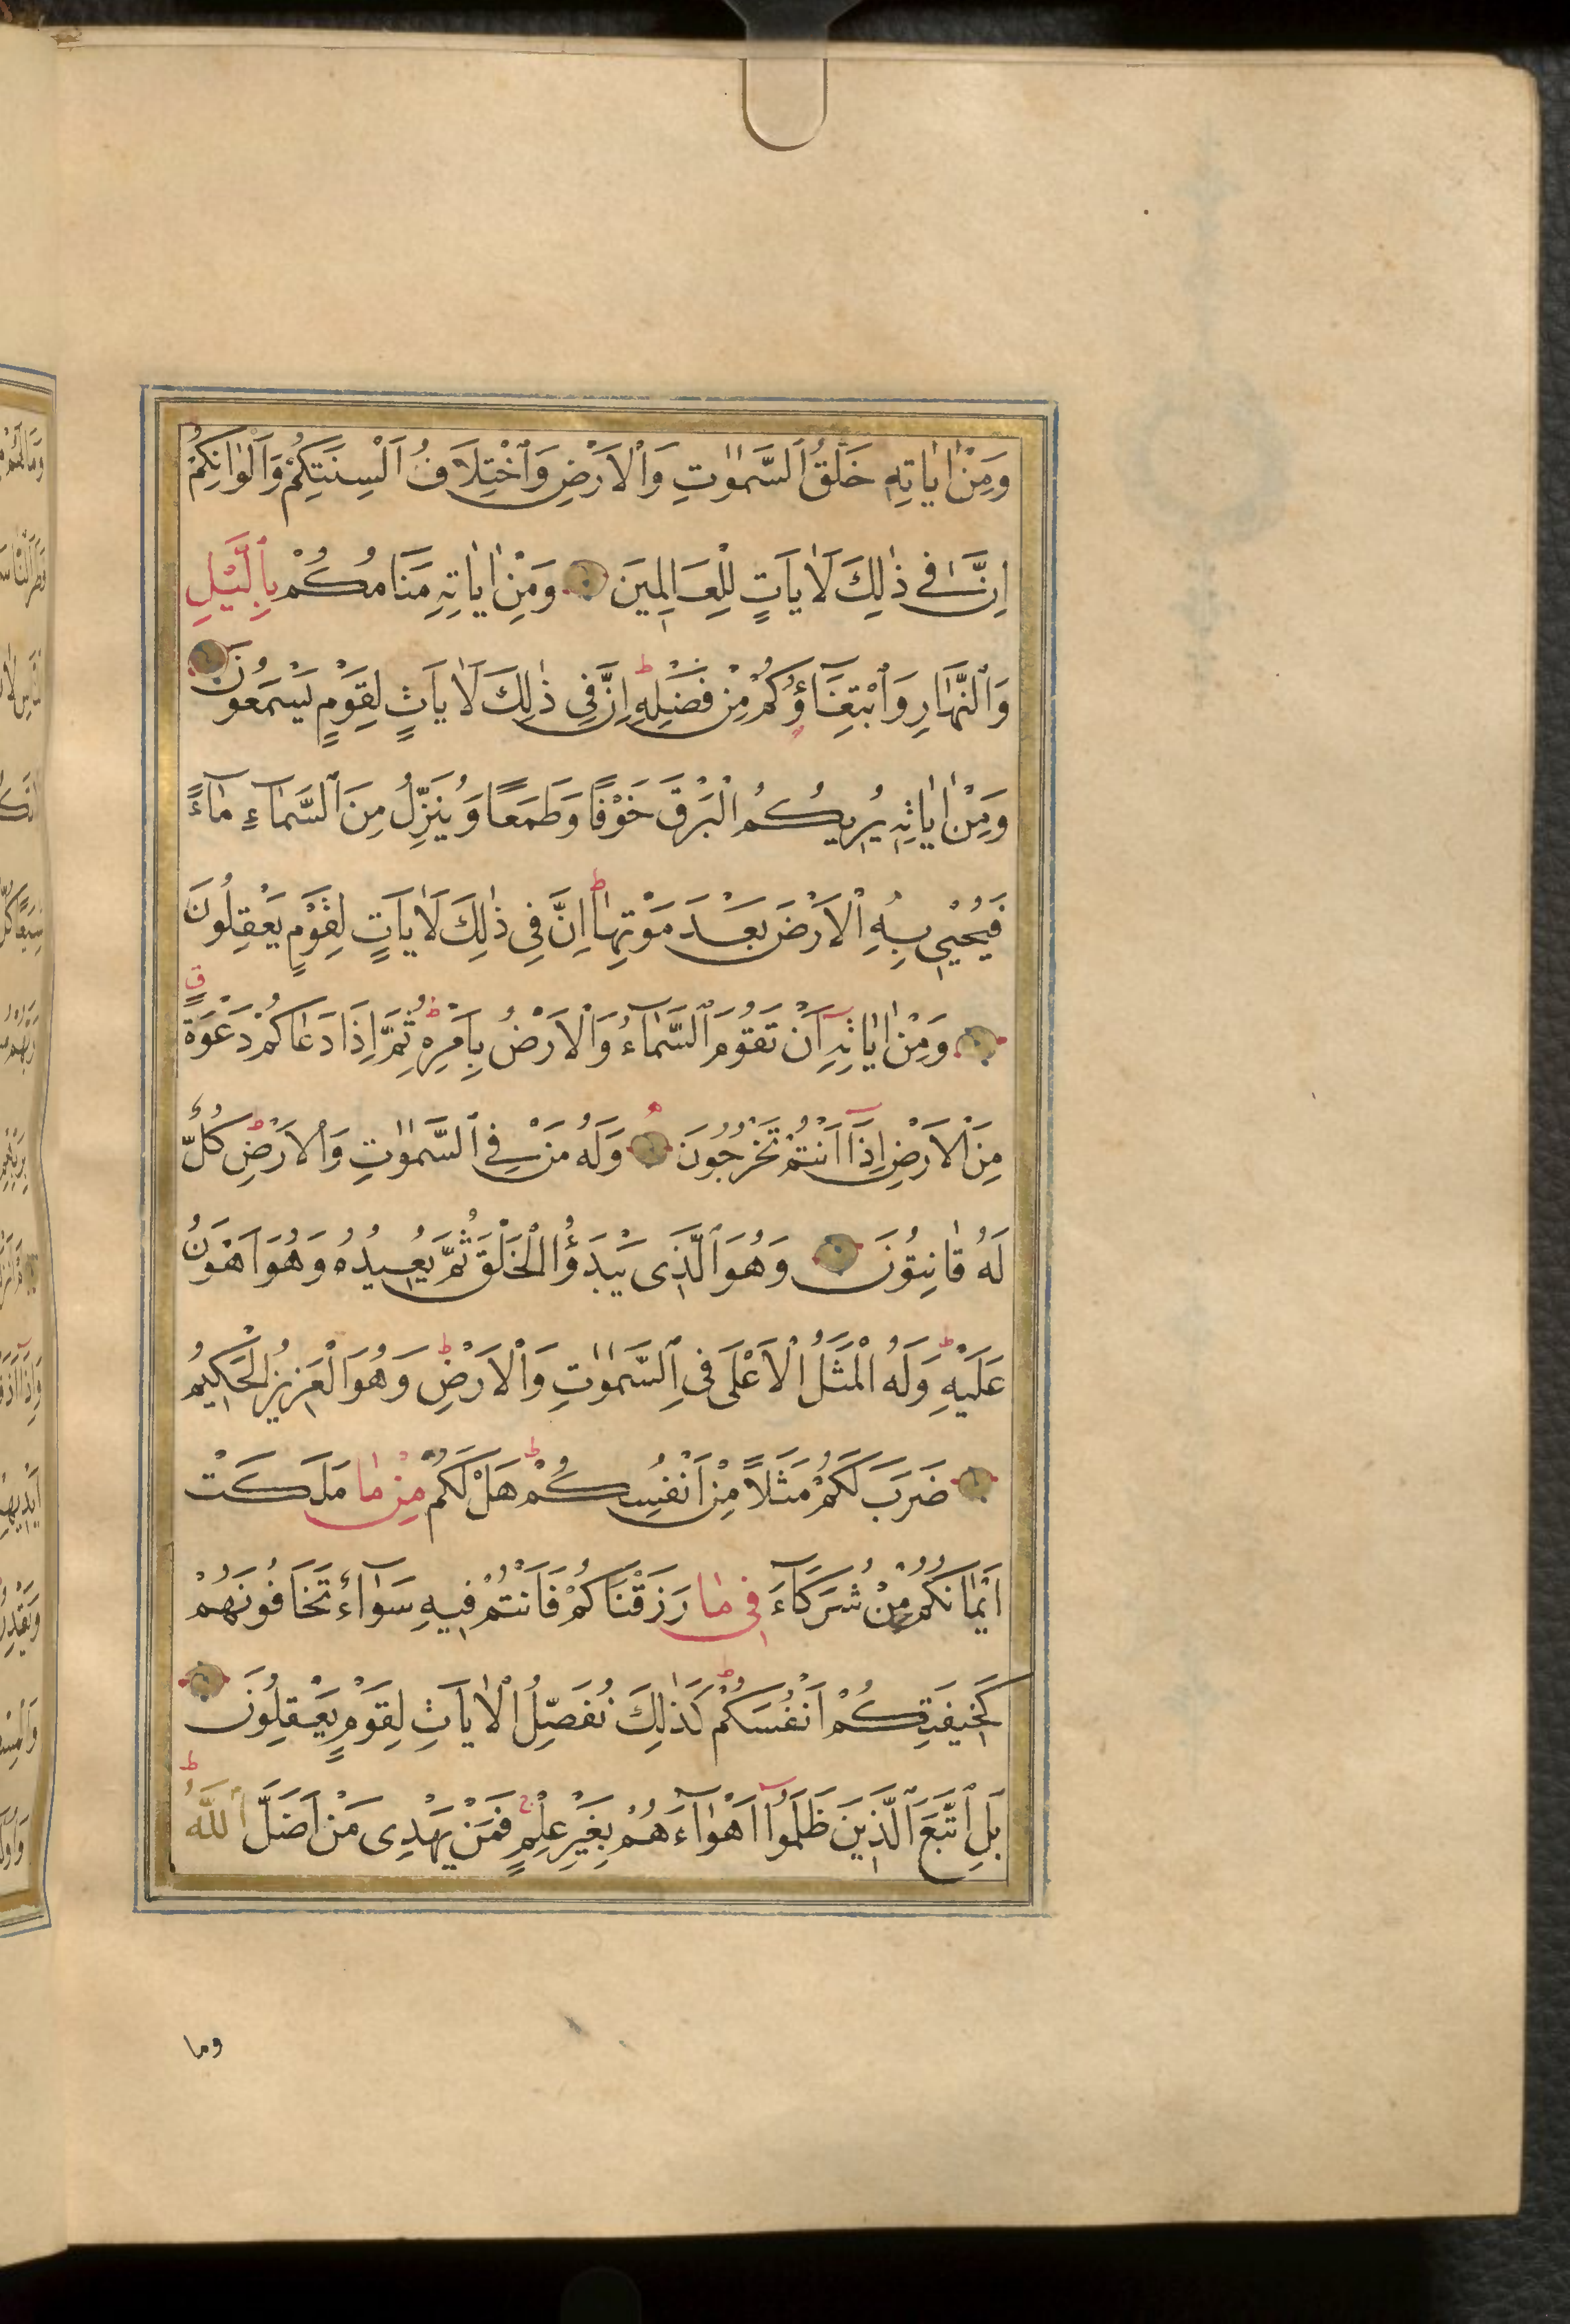 وَمِنْ اٰيَاتِهِ خَلْقُ ٱلسَّمٰوٰتِ وَٱلْاَرْضِ وَٱخْتِلَافُ اَلْسِنَتِكُمْ وَاَلْوَانِكُمْ
اِنَّ فِى ذٰلِكَ لَاٰيَاتٍ لِلْعَالِمِينَ وَمِنْ اٰيَاتِهِ مَنَامُكُمْ بِٱلَّيْلِ
وَٱلنَّهَارِ وَٱبْتِغَآؤُكُمْ مِنْ فَضْلِهِ ط اِنَّ فِى ذٰلِكَ لَاٰيَاتٍ لِقَوْمٍ يَسْمَعُونَ
وَمِنْ اٰيَاتِهِ يُرِيكُمُ الْبَرْقَ خَوْفًا وَطَمَعًا وَيُنَزِّلُ مِنَ ٱلسَّمَآءِ مَآءً
فَيُحْيِى بِهِ ٱلْاَرْضَ بَعْدَ مَوْتِهَا ط اِنَّ فِى ذٰلِكَ لَاٰيَاتٍ لِقَوْمٍ يَعْقِلُونَ
وَمِنْ اٰيَاتِهِ اَنْ تَقُومَ ٱلسَّمَآءُ وَٱلْاَرْضُ بِاَمْرِهِ ط ثُمَّ اِذَا دَعَاكُمْ دَعْوَةً ق
مِنَ ٱلْاَرْضِ اِذَآ اَنْتُمْ تَخْرُجُونَ وَلَهُ مَنْ فِى ٱلسَّمٰوٰتِ وَٱلْاَرْضِ ط كُلٌّ
لَهُ قَانِتُونَ وَهُوَ ٱلَّذِى يَبْدَؤُا ٱلْخَلْقَ ثُمَّ يُعِيدُهُ وَهُوَ اَهْوَنُ
عَلَيْهِ ط وَلَهُ الْمَثَلُ ٱلْاَعْلَى فِى ٱلسَّمٰوٰتِ وَٱلْاَرْضِ ط وَهُوَ الْعَزِيزُ الْحَكِيمُ
ضَرَبَ لَكُمْ مَثَلًا مِنْ اَنْفُسِكُمْ ط هَلْ لَكُمْ مِنْ مَا مَلَكَتْ
اَيْمَانُكُمْ مِنْ شُرَكَآءَ فِى مَا رَزَقْنَاكُمْ فَاَنْتُمْ فِيهِ سَوَآءٌ تَخَافُونَهُمْ
كَخِيفَتِكُمْ اَنْفُسَكُمْ ط كَذٰلِكَ نُفَصِّلُ ٱلْاٰيَاتِ لِقَوْمٍ يَعْقِلُونَ
بَلِ ٱتَّبَعَ ٱلَّذِينَ ظَلَمُوآ اَهْوَآءَهُمْ بِغَيْرِ عِلْمٍ ج فَمَنْ يَهْدِى مَنْ اَضَلَّ ٱللّٰهُ ط
وما